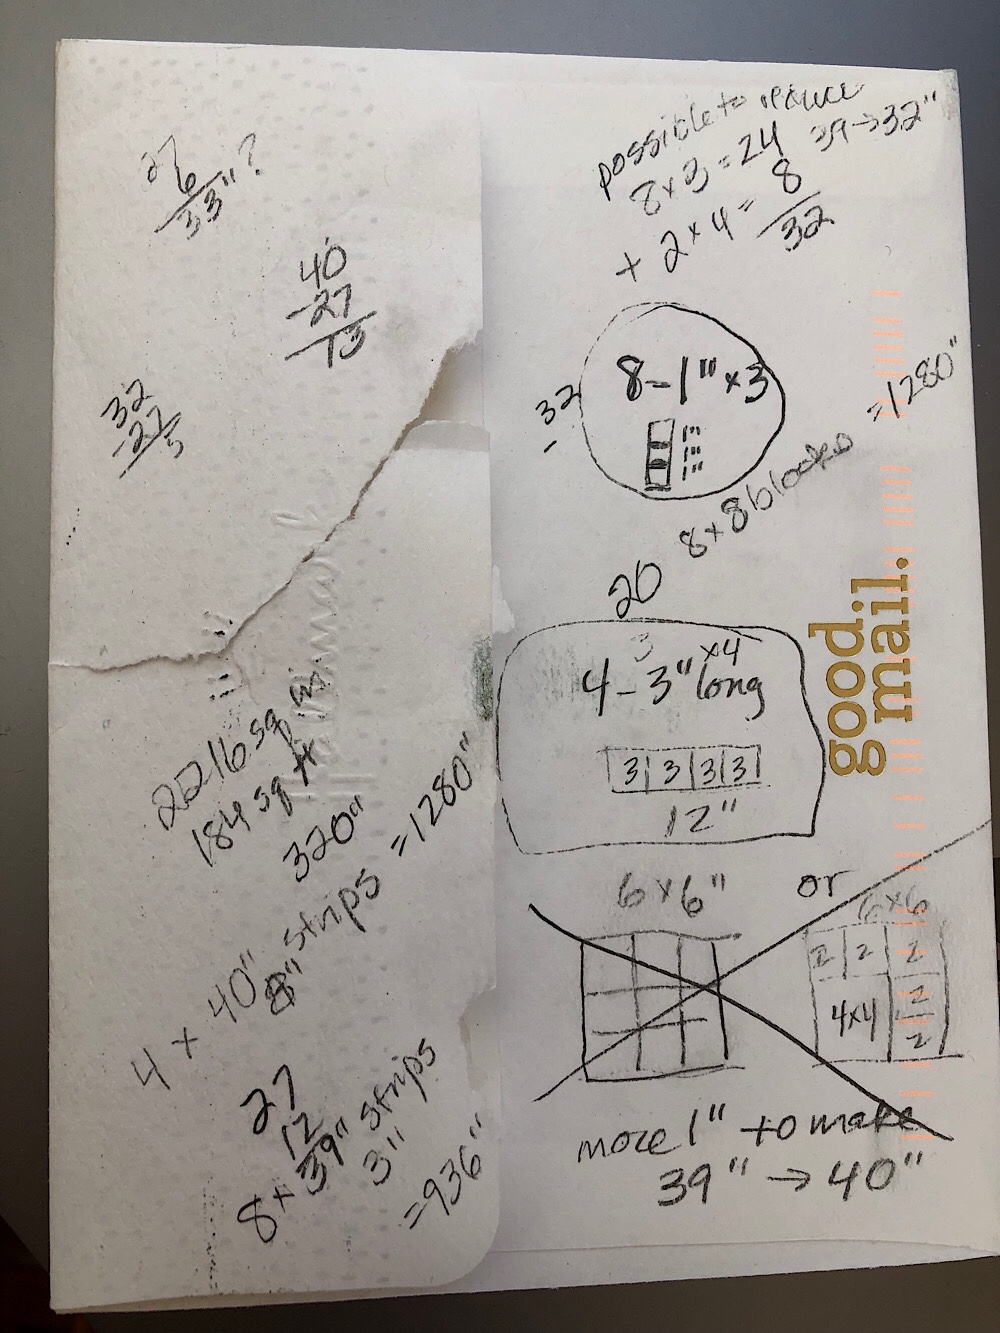 27
6
33"?
40
-27
13
32
-27
5
2216 sq in.
184 sq ft
320"
4 x 40" strips = 1280"
8"
27
12
8 x 39" strips
3"
= 936"
possible to reduce
39 → 32"
8 x 3 = 24
+ 2 x 4 = 8
32
- 32
8 - 1" x 3
1"
1"
1"
20 8x8 blocks = 1280"
3 x4
4 - 3" long
3 3 3 3
12"
6 x 6" or 6x6
2 2 2
4x4 2
2
more 1" to make
39" → 40"
good.
mail.
Hallmark